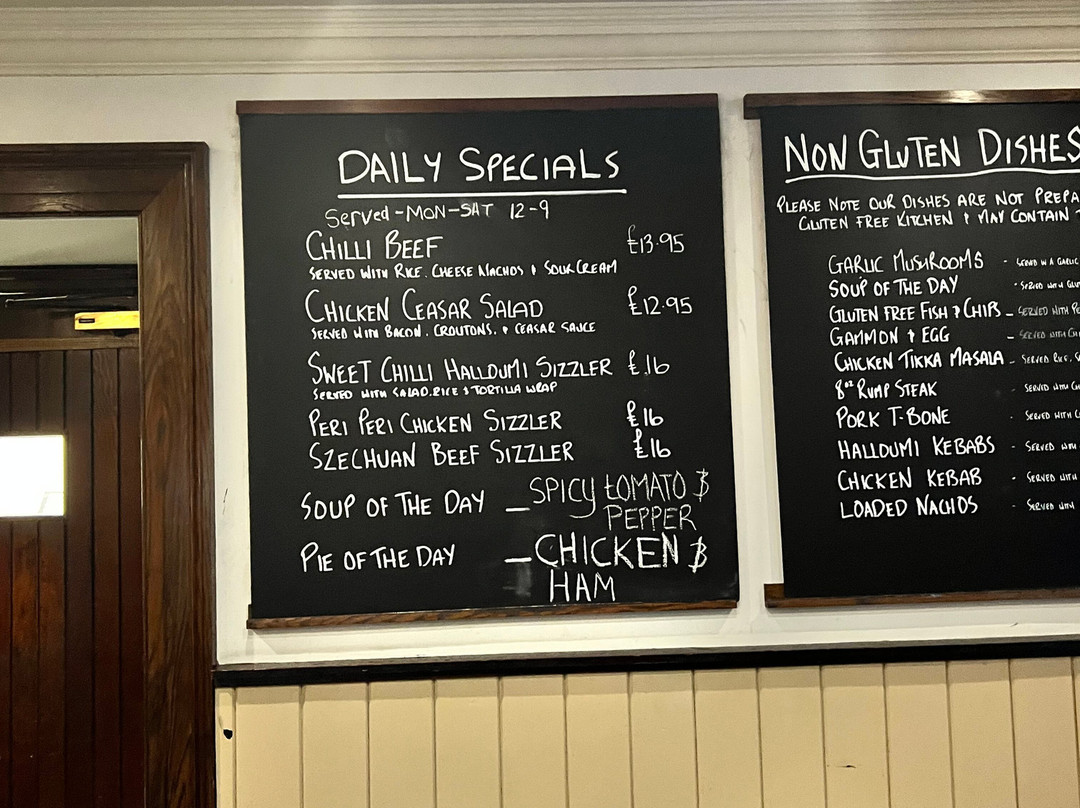 DAILY SPECIALS
Served - MON - SAT 12-9
CHILLI BEEF £13.95
SERVED WITH RICE. CHEESE NACHOS & SOUR CREAM
CHICKEN CEASAR SALAD £12.95
SERVED WITH BACON. CROUTONS. & CEASAR SAUCE
SWEET CHILLI HALLOUMI SIZZLER £16
SERVED WITH SALAD. RICE & TORTILLA WRAP
PERI PERI CHICKEN SIZZLER £16
SZECHUAN BEEF SIZZLER £16
SOUP OF THE DAY - SPICY tOMATO &
PEPPER
PIE OF THE DAY - CHICKEN &
HAM
NON GLUTEN DISHES
PLEASE NOTE OUR DISHES ARE NOT PREPA
GLUTEN FREE KITCHEN & MAY CONTAIN
GARLIC MUSHROOMS - SERVED W A GARLIC
SOUP OF THE DAY - SERVED WITH GLU
GLUTEN FREE FISH & CHIPS - SERVED WITH PE
GAMMON & EGG - SERVED WITH
CHICKEN TIKKA MASALA - SERVED RICE.
8oz RUMP STEAK - SERVED WITH
PORK T-BONE - SERVED WITH
HALLOUMI KEBABS - SERVED
CHICKEN KEBAB - SERVED WITH
LOADED NACHOS - SERVED WITH